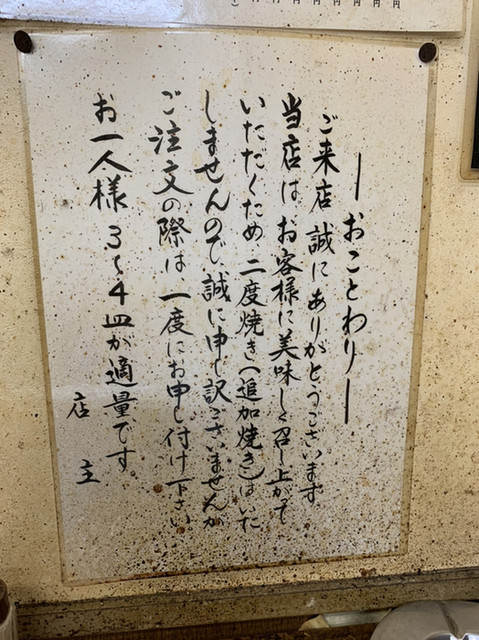 ―おことわり―
ご来店誠にありがとうございます。
当店はお客様に美味しく召し上がって
いただくため二度焼き(追加焼き)はいた
しませんので誠に申し訳ございませんが
ご注文の際は一度にお申し付け下さい
お一人様3〜4皿が適量です。
店主